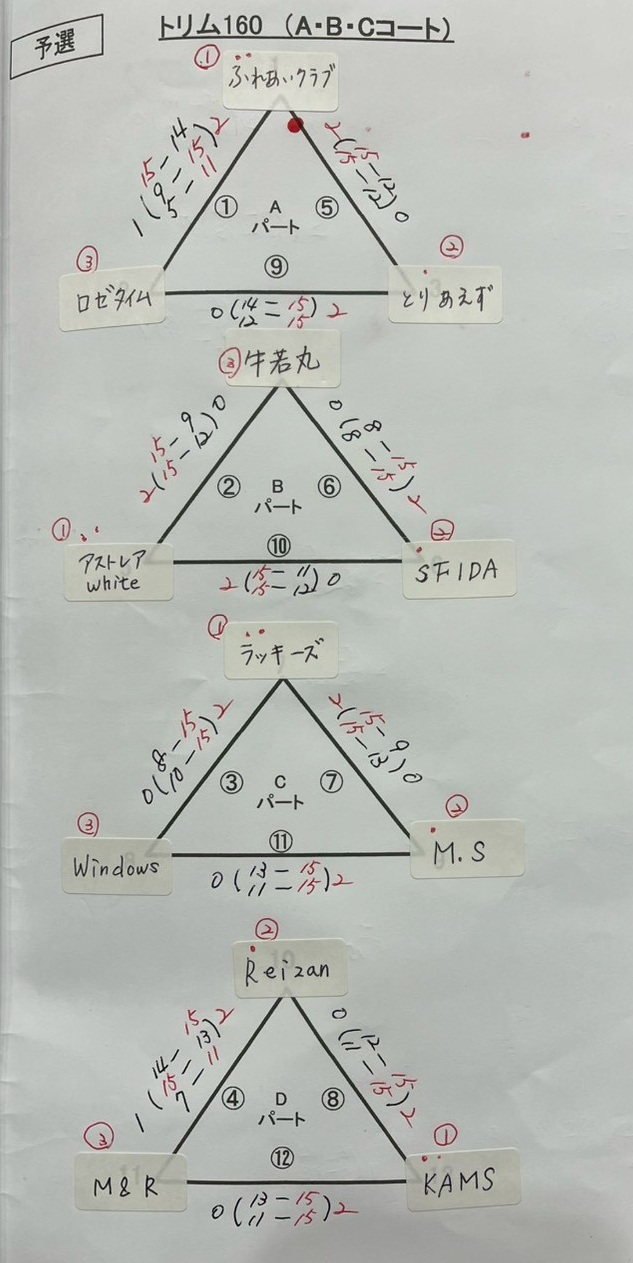 予選
トリム160 （A・B・Cコート）
① ふれあいクラブ
15 - 14
1 ( 9 - 15 ) 2
5 - 11
2 ( 15 - 12
15 - 12 ) 0
① A ⑤
パート
⑨
③ ロゼタイム
② とりあえず
0 ( 14 = 15 ) 2
12 15
③ 牛若丸
15 - 9
2 ( 15 - 12 ) 0
0 ( 8 - 15
8 - 15 ) 2
② B ⑥
パート
⑩
① アストレア
white
② SFIDA
2 ( 15 = 11 ) 0
15 = 12
① ラッキーズ
8 - 15
0 ( 10 - 15 ) 2
2 ( 15 - 9
15 - 13 ) 0
③ C ⑦
パート
⑪
③ Windows
② M.S
0 ( 13 = 15 ) 2
11 = 15
② Reizan
14 - 15
1 ( 15 - 13 ) 2
7 - 11
0 ( 12 - 15
11 - 15 ) 2
④ D ⑧
パート
⑫
③ M&R
① KAMS
0 ( 13 = 15 ) 2
11 - 15